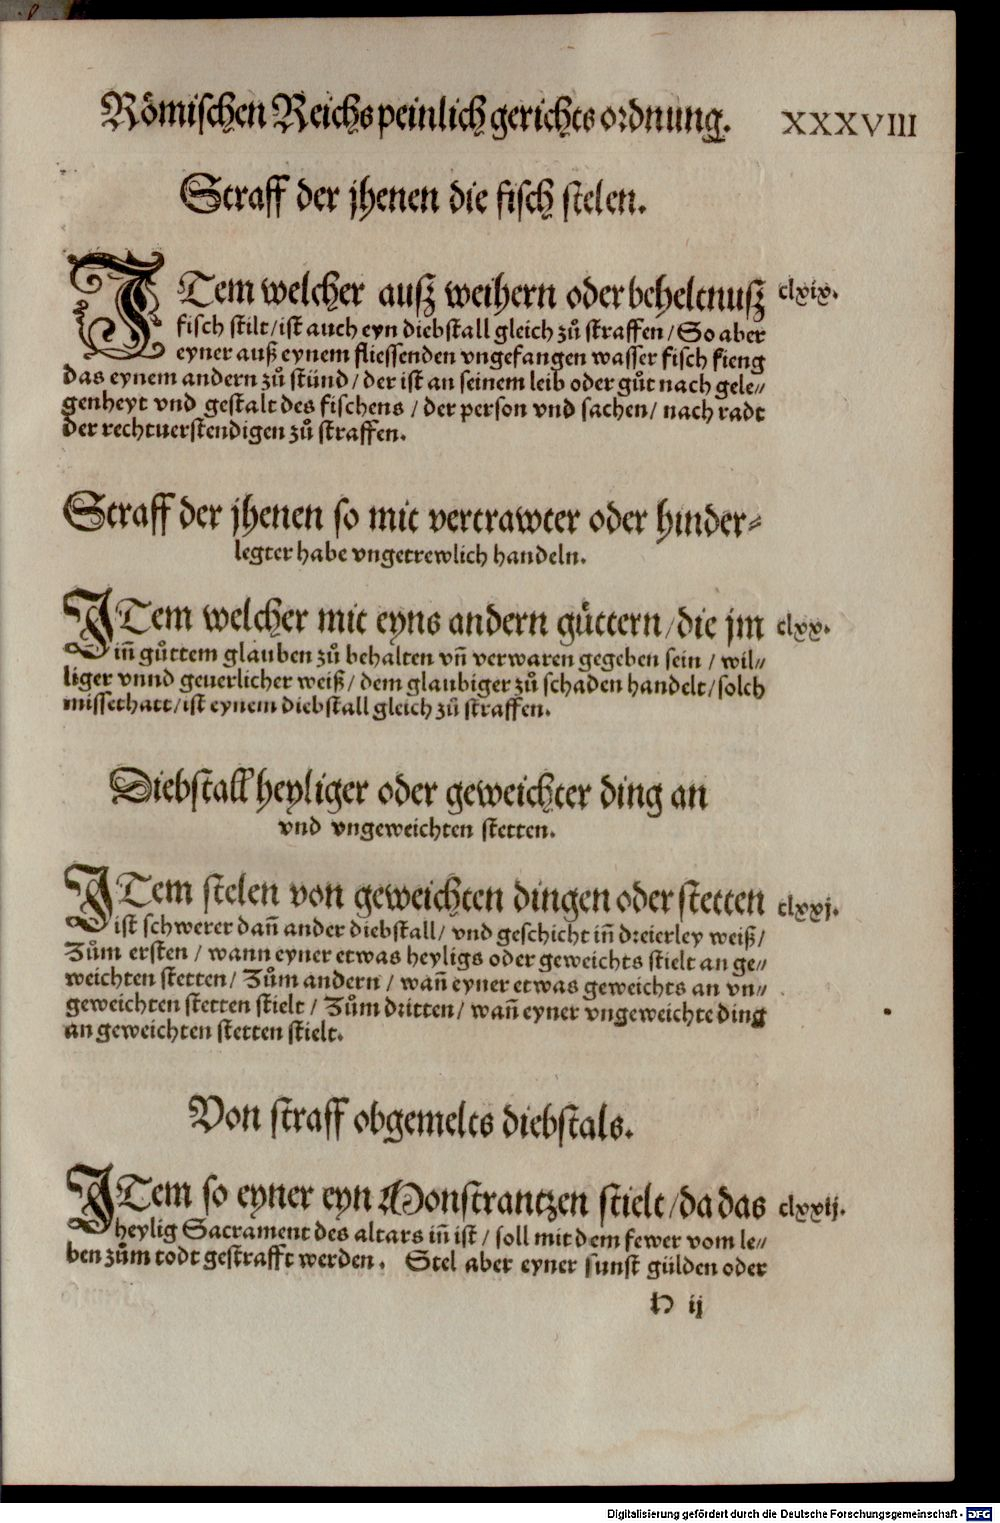 Römischen Reichs peinlich gerichts ordnung. XXXVIII
Straff der jhenen die fisch stelen.
ITem welcher außz weihern oder beheltnußz clxix.
fisch stilt / ist auch eyn diebstall gleich zů straffen / So aber
eyner auß eynem fliessenden vngefangen wasser fisch fieng
das eynem andern zů stünd / der ist an seinem leib oder gůt nach gele⸗
genheyt vnd gestalt des fischens / der person vnd sachen / nach radt
der rechtuerstendigen zů straffen.
Straff der jhenen so mit vertrawter oder hinder⸗
legter habe vngetrewlich handeln.
ITem welcher mit eyns andern gůttern / die jm clxx.
iñ gůttem glauben zů behalten vñ verwaren gegeben sein / wil⸗
liger vnnd geuerlicher weiß / dem glaubiger zů schaden handelt / solch
missethatt / ist eynem diebstall gleich zů straffen.
Diebstall heyliger oder geweichter ding an
vnd vngeweichten stetten.
ITem stelen von geweichten dingen oder stetten clxxj.
ist schwerer dañ ander diebstall / vnd geschicht iñ dreierley weiß /
Zům ersten / wann eyner etwas heyligs oder geweichts stielt an ge⸗
weichten stetten / Zům andern / wañ eyner etwas geweichts an vn⸗
geweichten stetten stielt / Zům dritten / wañ eyner vngeweichte ding
an geweichten stetten stielt.
Von straff obgemelts diebstals.
ITem so eyner eyn Monstrantzen stielt / da das clxxij.
heylig Sacrament des altars iñ ist / soll mit dem fewer vom le⸗
ben zům todt gestrafft werden. Stel aber eyner sunst gülden oder
H ij
Digitalisierung gefördert durch die Deutsche Forschungsgemeinschaft - DFG